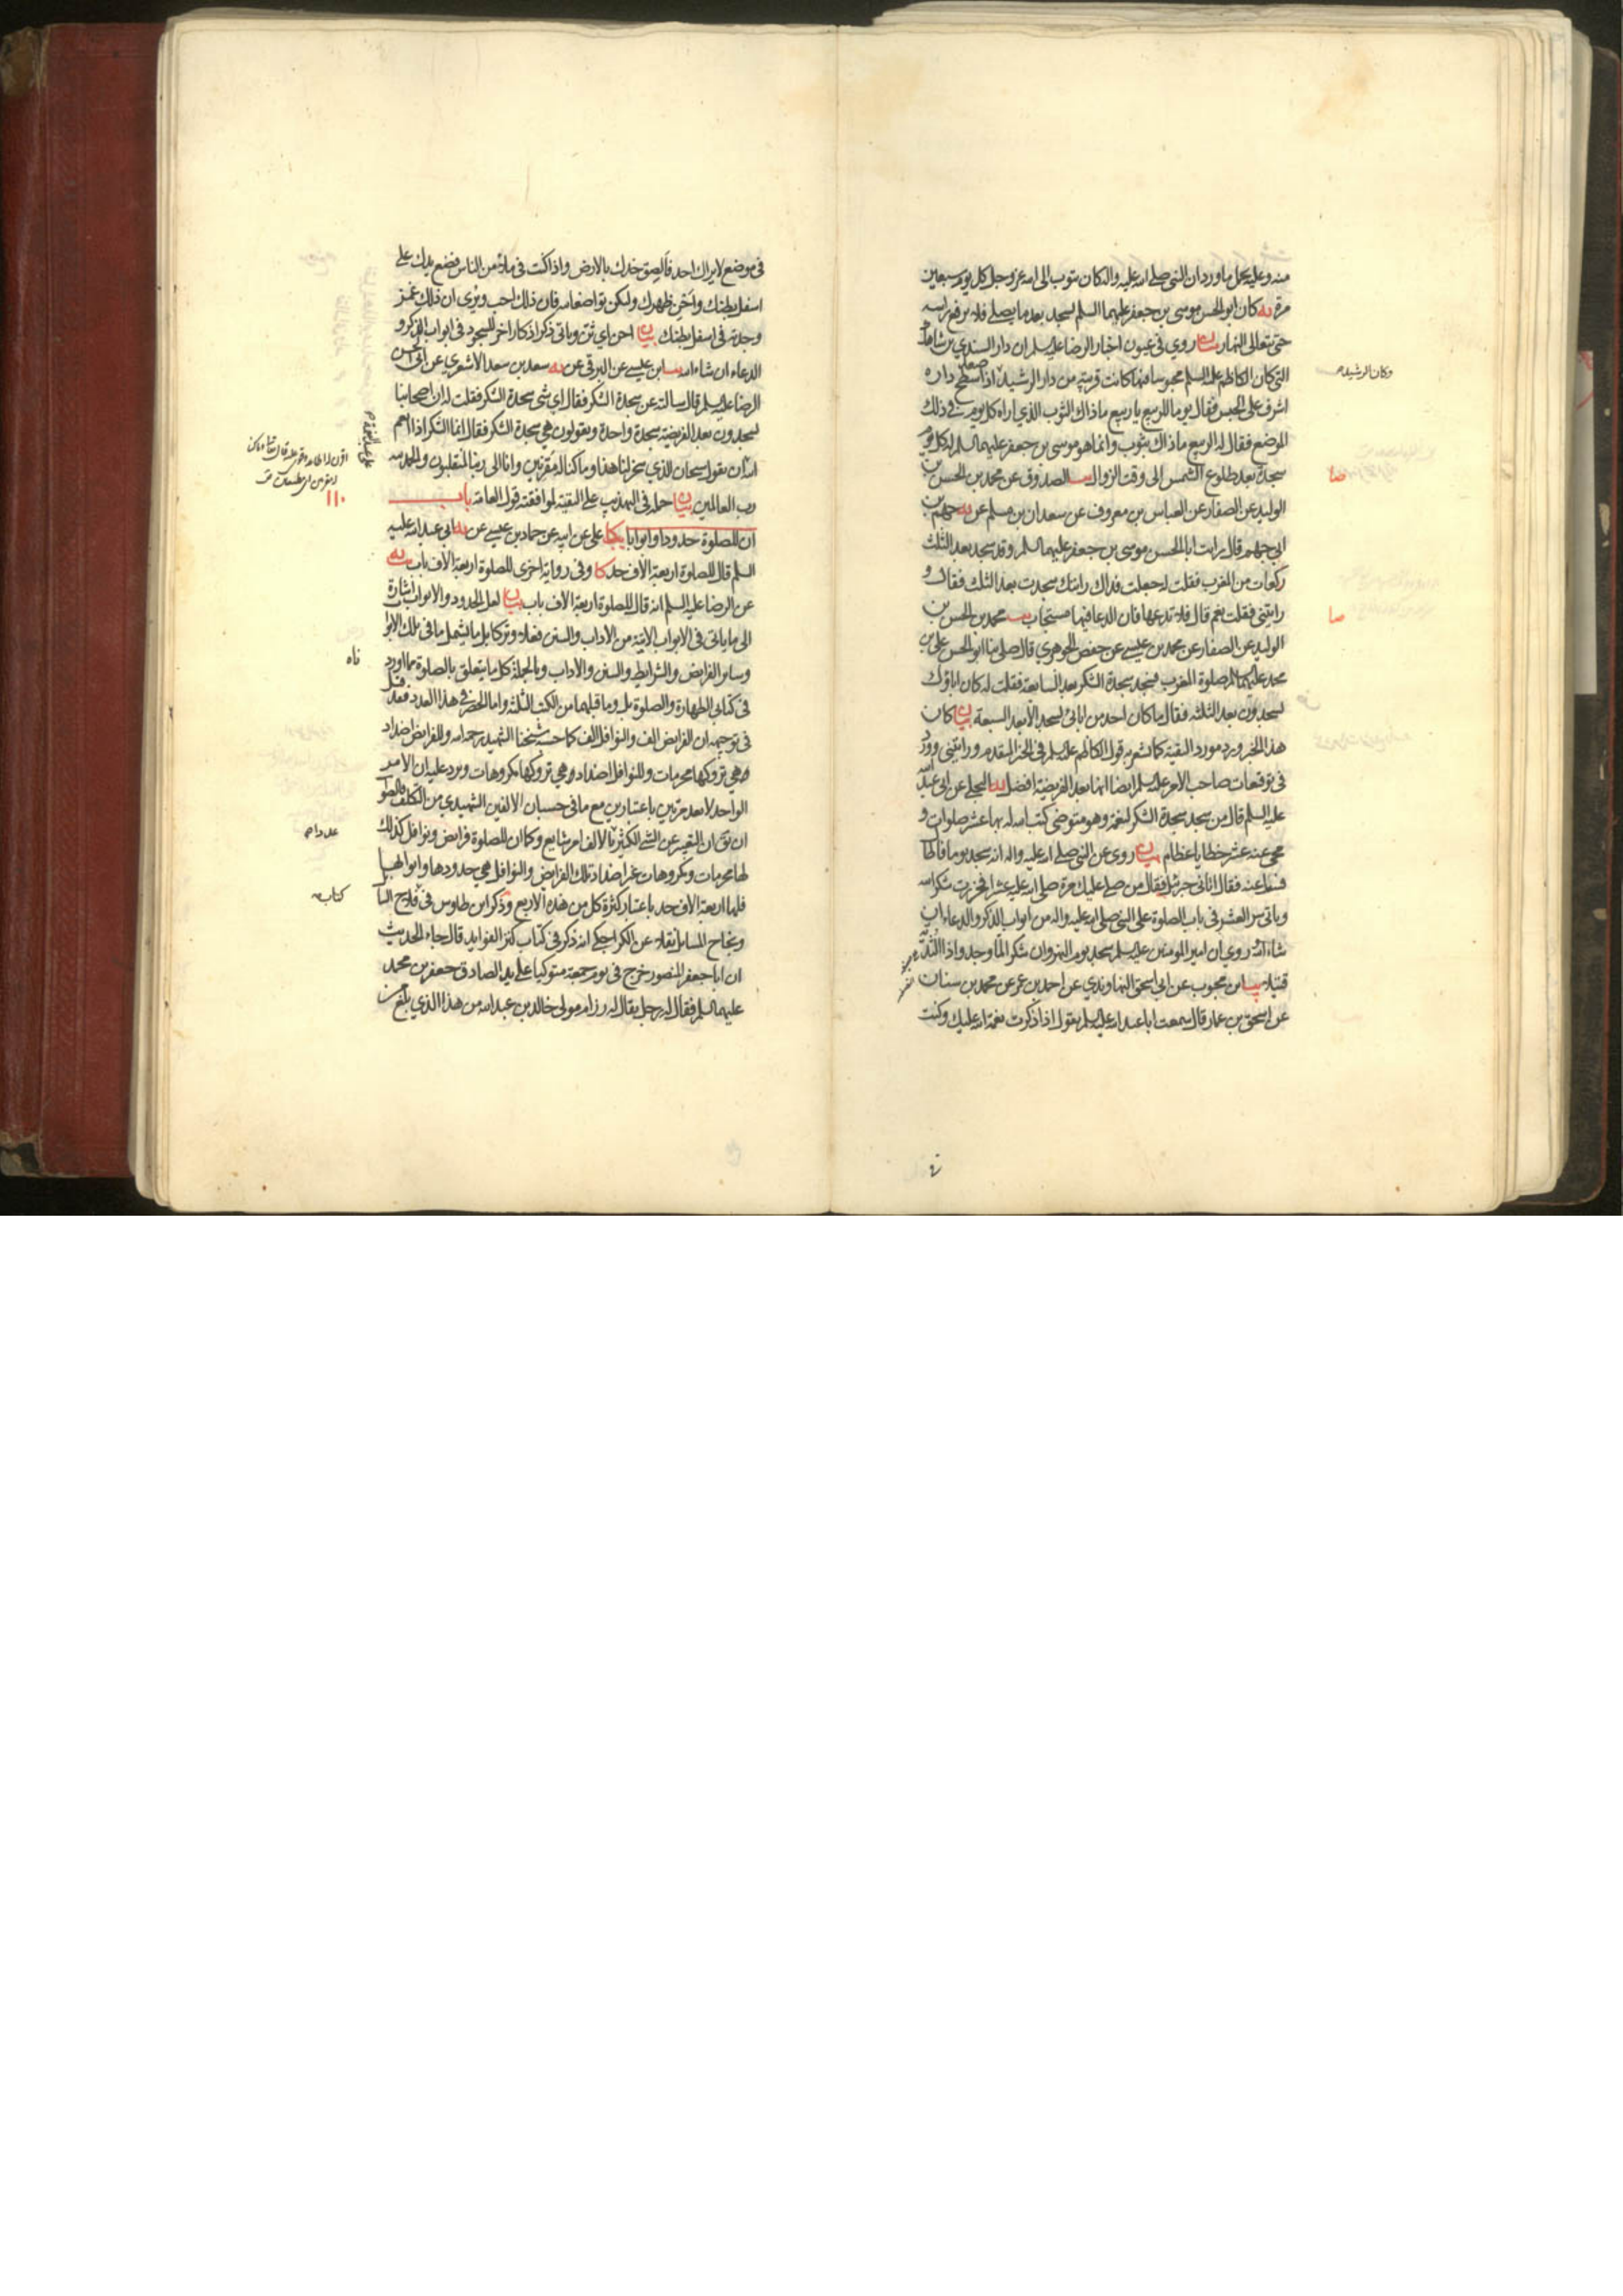 منه وعليه يحمل ما ورد ان النبي صلى الله عليه واله كان يتوب الى الله عز وجل كل يوم سبعين
مرة يه كان ابو الحسن موسى بن جعفر عليهما السلم يسجد بعد ما يصلي فلا يرفع راسه
حتى يتعالى النهار بيان روي في عيون اخبار الرضا عليه السلم ان دار السندي بن شاهك
التي كان الكاظم عليه السلم محبوسا فيها كانت قريبة من دار الرشيد اذا صعد سطح داره
وكان الرشيد
اشرف على الحبس فقال يوما للربيع يا ربيع ما ذاك الثوب الذي اراه كل يوم في ذلك
الموضع فقال له الربيع ما ذاك بثوب وانما هو موسى بن جعفر عليهما السلم له كل يوم
سجدة بعد طلوع الشمس الى وقت الزوال يب الصدوق عن محمد بن الحسن بن
صا
الوليد عن الصفار عن العباس بن معروف عن سعدان بن مسلم عن يه جهم بن
ابي جهم قال رايت ابا الحسن موسى بن جعفر عليهما السلم وقد سجد بعد الثلث
ركعات من المغرب فقلت له جعلت فداك رايتك سجدت بعد الثلث فقال و
رايتني فقلت نعم قال فلا تدعها فان الدعا فيها مستجاب يب محمد بن الحسن بن
صا
الوليد عن الصفار عن محمد بن عيسى عن حفص الجوهري قال صلى بنا ابو الحسن علي بن
محمد عليهما السلم صلوة المغرب فسجد سجدة الشكر بعد السابعة فقلت له كان اباؤك
يسجدون بعد الثلثة فقال ما كان احد من ابائي يسجد الا بعد السبعة بيان كان
هذا الخبر ورد مورد التقية كما يشعر به قول الكاظم عليه السلم في الخبر المتقدم ورايتني وورد
في توقيعات صاحب الامر عليه السلم ايضا انها بعد الفريضة افضل يه البجلي عن ابي عبد الله
عليه السلم قال من سجد سجدة الشكر لنعمة وهو متوضئ كتب الله له بها عشر صلوات و
محي عنه عشر خطايا عظام بيان روي عن النبي صلى الله عليه واله انه سجد يوما فاطال
فسئل عنه فقال اتاني جبرئيل فقال من صلى عليك مرة صلى الله عليه عشرا فخررت شكرا لله
وياتي سر العشر في باب الصلوة على النبي صلى الله عليه واله من ابواب الذكر والدعاء ان
شاء الله روي ان امير المومنين عليه السلم سجد يوم النهروان شكرا لما وجد واذا الثدية
قتيلا يب ابن محبوب عن ابي اسحق النهاوندي عن احمد بن عمر عن محمد بن سنان
عن اسحق بن عمار قال سمعت ابا عبد الله عليه السلم يقول اذا ذكرت نعمة الله عليك وكنت
في موضع لا يراك احد فالصق خدك بالارض واذا كنت في ملاء من الناس فضع يدك على
اسفل بطنك واحن ظهرك وليكن تواضعا لله فان ذلك احب ويرى ان ذلك غمز
وجدته في اسفل بطنك بيان احن اي ثن وياتي ذكر اذكار اخر للسجود في ابواب الذكر و
الدعاء ان شاء الله يب ابن عيسى عن البرقي عن يه سعد بن سعد الاشعري عن ابي الحسن
الرضا عليه السلم قال سالته عن سجدة الشكر فقال اي شيء سجدة الشكر فقلت له ان اصحابنا
يسجدون بعد الفريضة سجدة واحدة ويقولون هي سجدة الشكر فقال انما الشكر اذا انعم
الله ان يقول سبحان الذي سخر لنا هذا وما كنا له مقرنين وانا الى ربنا لمنقلبون والحمد لله
رب العالمين بيان حمله في التهذيب على التقية لموافقته قول العامة باب
١١٠
ان للصلوة حدودا وابوابا يكا علي عن ابيه عن حماد بن عيسى عن يه ابي عبد الله عليه
السلم قال للصلوة اربعة الاف حد كا وفي رواية اخرى للصلوة اربعة الاف باب يه
عن الرضا عليه السلم انه قال للصلوة اربعة الاف باب بيان لعل الحدود والابواب اشارة
الى ما ياتي في الابواب الاتية من الاداب والسنن فعلا وتركا بل ما يشمل ما في تلك الابواب
وساير الفرايض والشرايط والسنن والاداب وبالجملة كل ما يتعلق بالصلوة مما اورد
ناه
في كتابي الطهارة والصلوة بل وما قبلهما من الكتب الثلثة واما الحصر في هذا العدد فقد قيل
في توجيهه ان الفرايض الف والنوافل الف كما حسبه شيخنا الشهيد رحمه الله وللفرايض اضداد
وهي تروكها محرمات وللنوافل اضداد وهي تروكها مكروهات ويرد عليه ان الامر
الواحد لا يعد مرتين باعتبارين مع ما في حسبان الالفين الشهيدي من التكلف فالصواب
ان يق ان التعبير عن الشيء الكثير بالالف امر شايع وكما ان للصلوة فرايض ونوافل كذلك
لها محرمات ومكروهات غير اضداد تلك الفرايض والنوافل هي حدودها وابوابها
فلها اربعة الاف حد باعتبار كثرة كل من هذه الاربع وذكر ابن طاوس في فلاح السائل
كتابه
ونجاح المسايل نقلا عن الكراجكي انه ذكر في كتاب كنز الفوايد قال جاء الحديث
ان ابا جعفر المنصور خرج في يوم جمعة متوكيا على يد الصادق جعفر بن محمد
عليهما السلم فقال له رجل يقال له رزام مولى خالد بن عبد الله من هذا الذي بلغ من